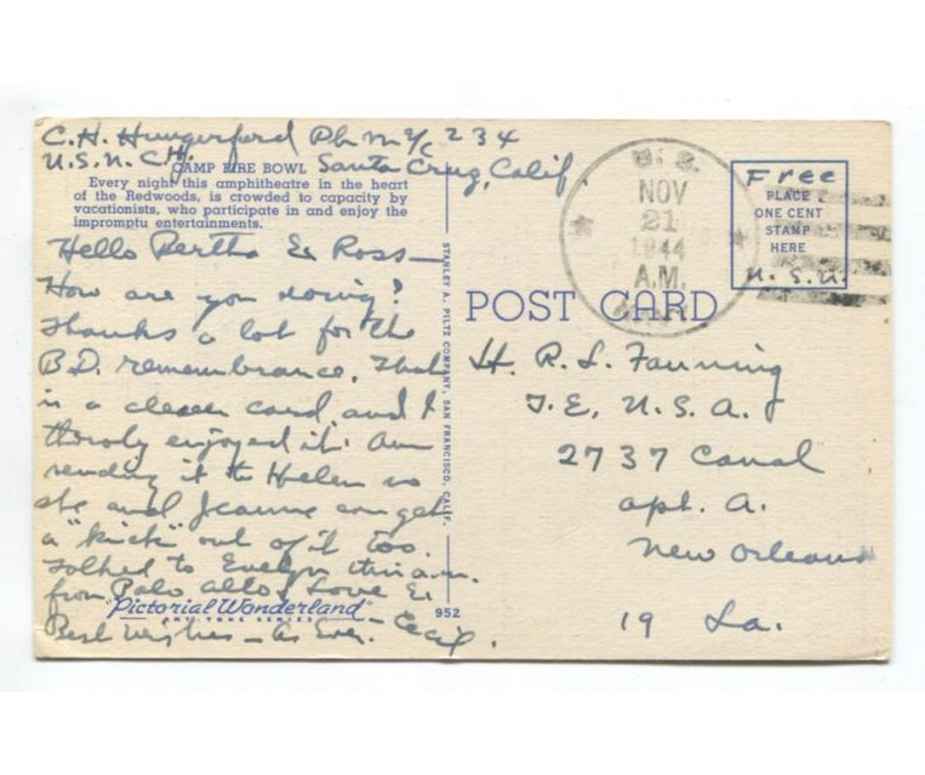 C.H. Hungerford Ph M 2/c 234
U.S.N.C.H. Santa Cruz, Calif.
CAMP FIRE BOWL
Every night this amphitheatre in the heart
of the Redwoods, is crowded to capacity by
vacationists, who participate in and enjoy the
impromptu entertainments.
Hello Bertha & Ross—
How are you doing?
Thanks a lot for the
B.D. remembrance. That
is a clever card and I
thoroly enjoyed it. Am
sending it to Helen so
she and Jeanne can get
a "kick" out of it too.
Talked to Evelyn this a.m.
from Palo Alto. Love &
Best Wishes — As Ever. — Cecil.
"Pictorial Wonderland"
ART TONE SERIES
952
STANLEY A. PILTZ COMPANY, SAN FRANCISCO, CALIF.
U. S.
NOV
21
1944
A.M.
NAVY
Free
PLACE
ONE CENT
STAMP
HERE
U.S.N.
POST CARD
Lt. R. L. Fanning
T.E, U.S.A.
2737 Canal
apt. A.
New Orleans
19 La.